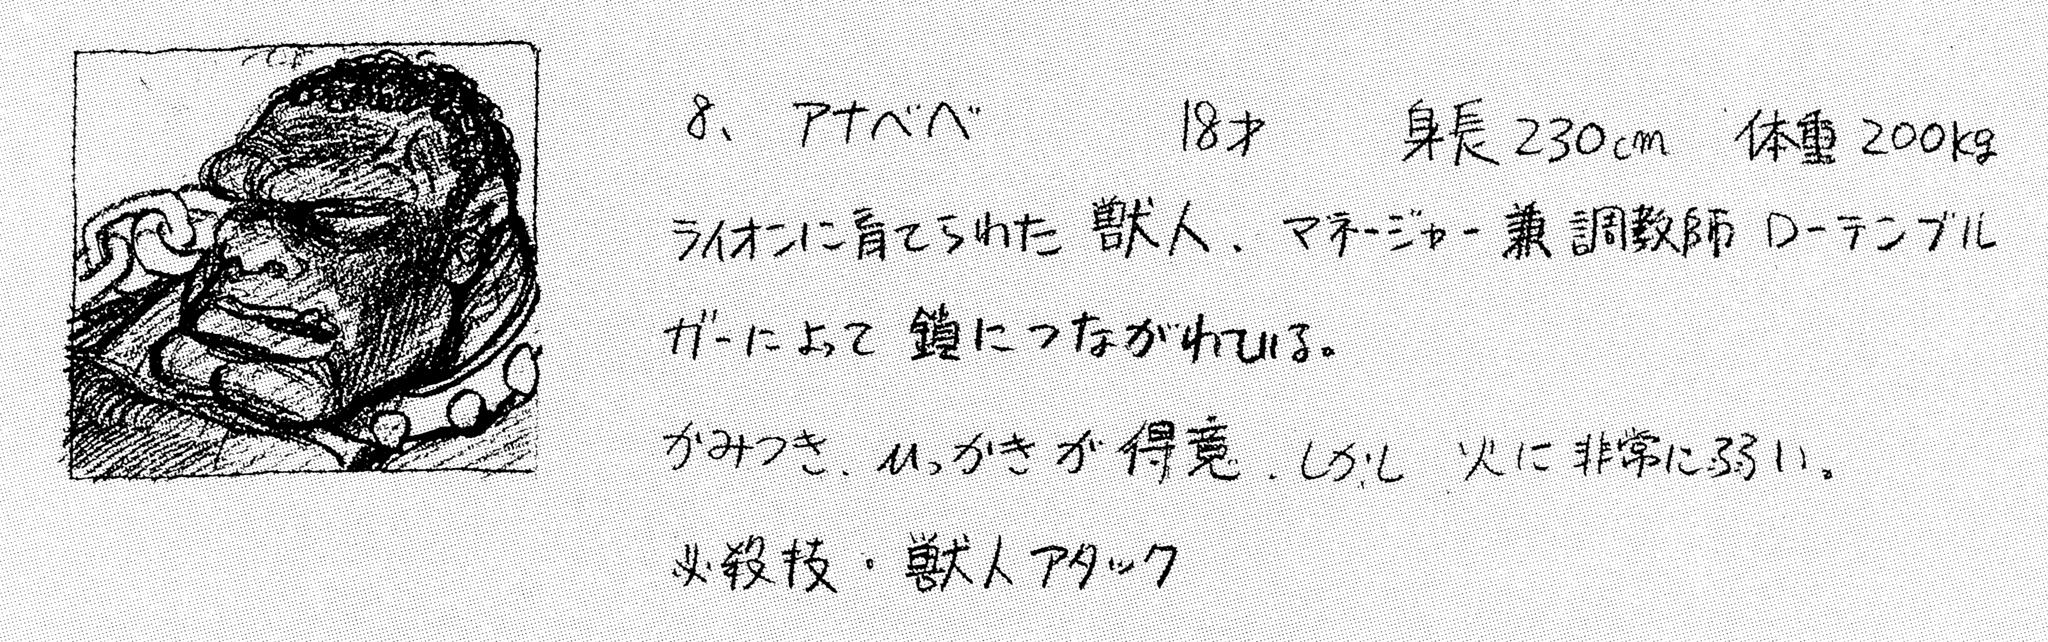 8、 アナベベ 18才 身長230cm 体重200kg
ライオンに育てられた獣人、マネージャー兼調教師ローテンブル
ガーによって鎖につながれている。
かみつき、ひっかきが得意、しかし 火に非常に弱い。
必殺技・獣人アタック